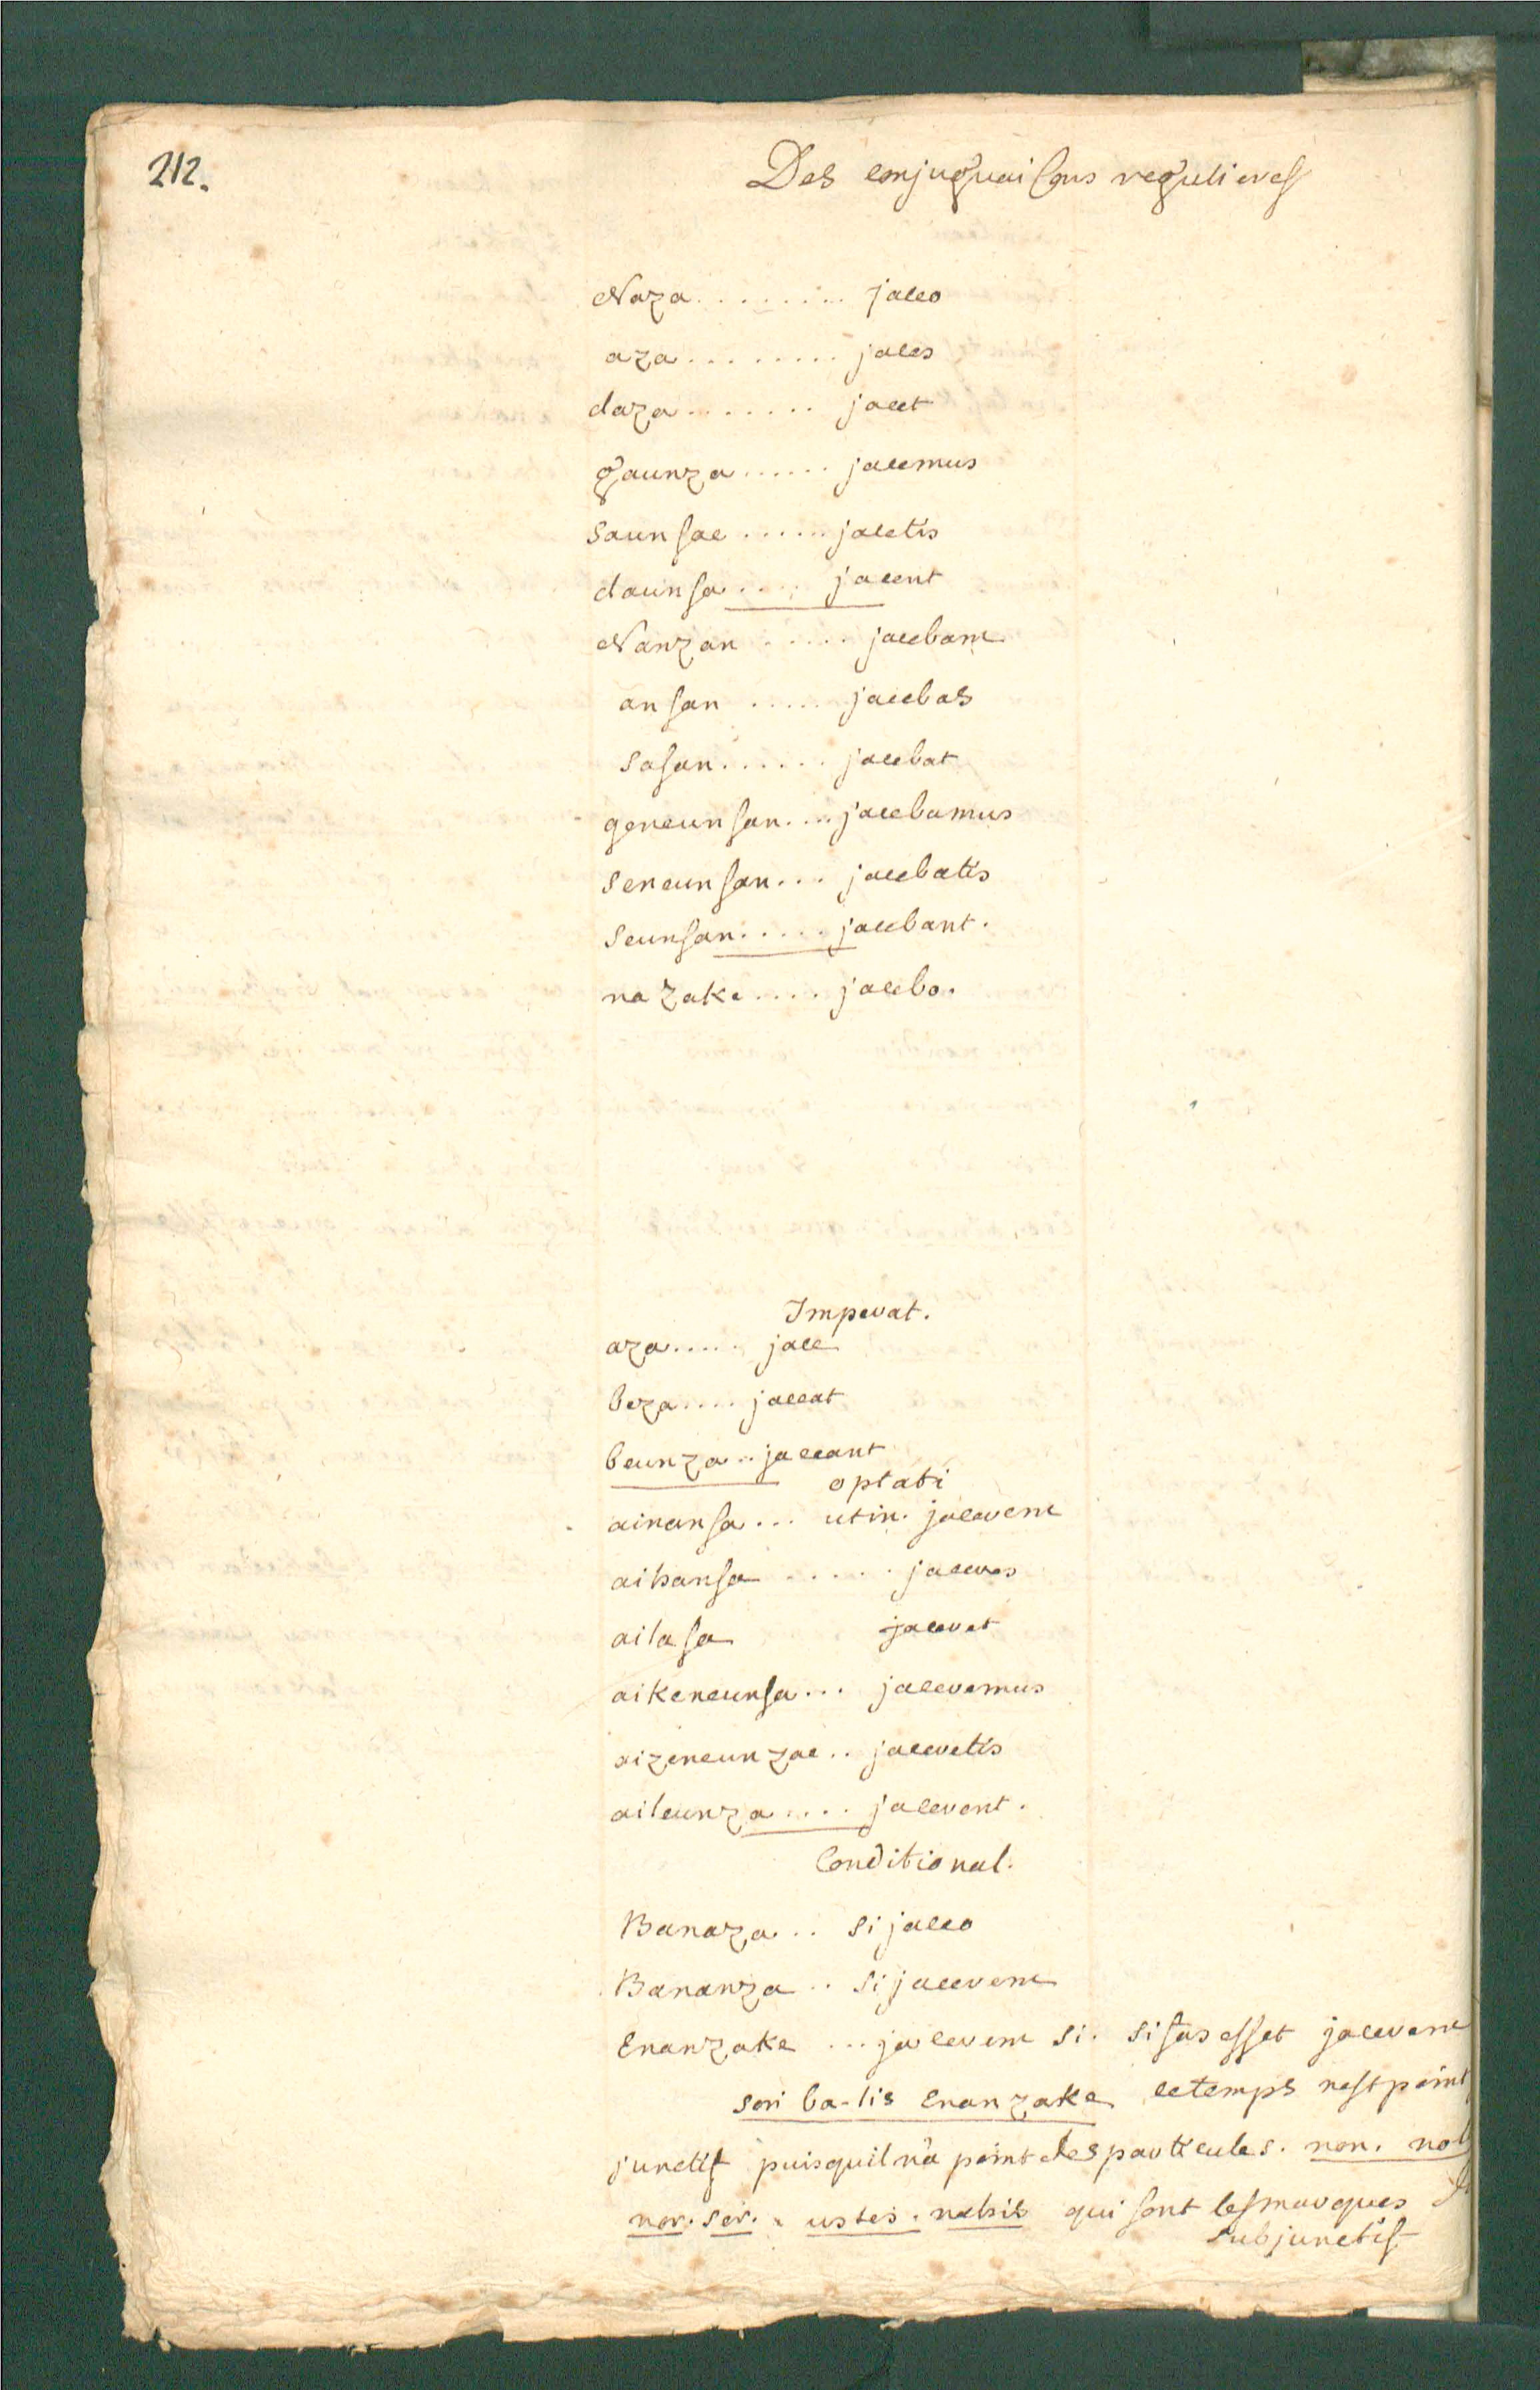 212.
Des conjuguaisons regulieres
Naza........ jaceo
aza......... jaces
daza....... jacet
gaunza...... jacemus
saunsae...... jacetis
daunsa..... jacent
Nanzan..... jacebam
ansan..... jacebas
sasan...... jacebat
geneunsan.... jacebamus
seneunsan... jacebatis
seunsan..... jacebant.
nazake.... jacebo.
Imperat.
aza..... jace
beza.... jaceat
beunza.. jaceant
optati
ainansa... utin. jacerem
aihansa..... jaceres
ailasa jaceret
aikeneunsa... jaceremus
aizeneunzae.. jaceretis
aileunza.... jacerent.
Conditional.
Banaza.. si jaceo
Bananza.. si jacerem
Enanzake... jacerem si. si fas esset jacerem
sori ba-lis enanzake ce temps nest point
junctif puisquil na point des particules. non. nol
nor. ser. ustes. nahis qui sont les marques
subjunctif